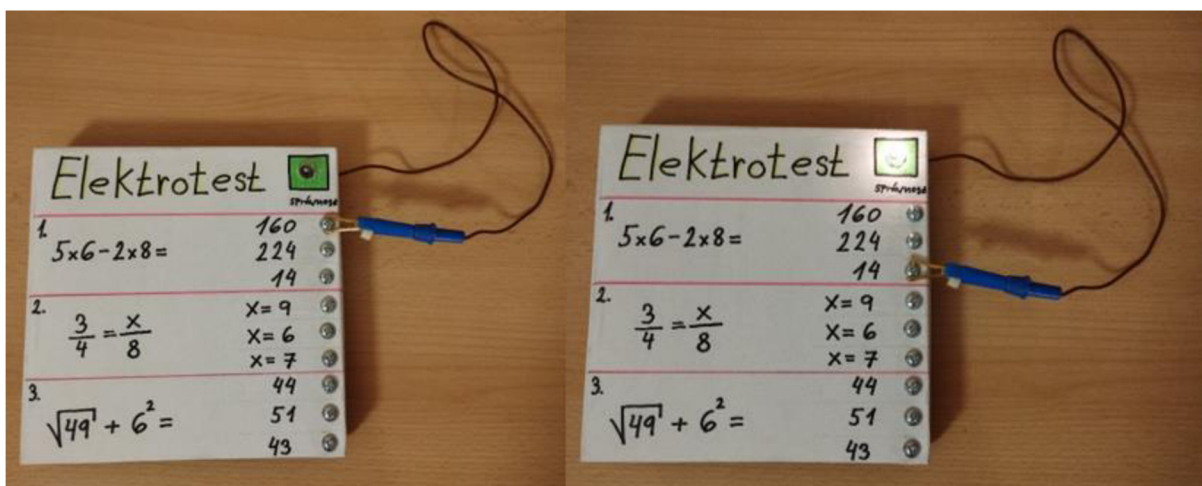 Elektrotest
správnost
1.
5x6-2x8=
160
224
14
2.
3/4 = x/8
x=9
x=6
x=7
3.
√49 + 6² =
44
51
43
Elektrotest
správnost
1.
5x6-2x8=
160
224
14
2.
3/4 = x/8
x=9
x=6
x=7
3.
√49 + 6² =
44
51
43